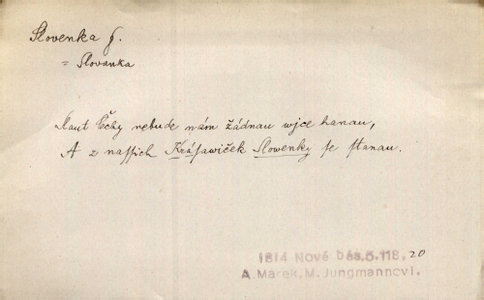 Slovenka f.
= Slovanka
Saut Čechy nebude nám žádnau wjce hanau,
A z nassich Krásawiček Slowenky se stanau.
1814 Nové bás.5.118, 20
A. Marek. M. Jungmannovi.